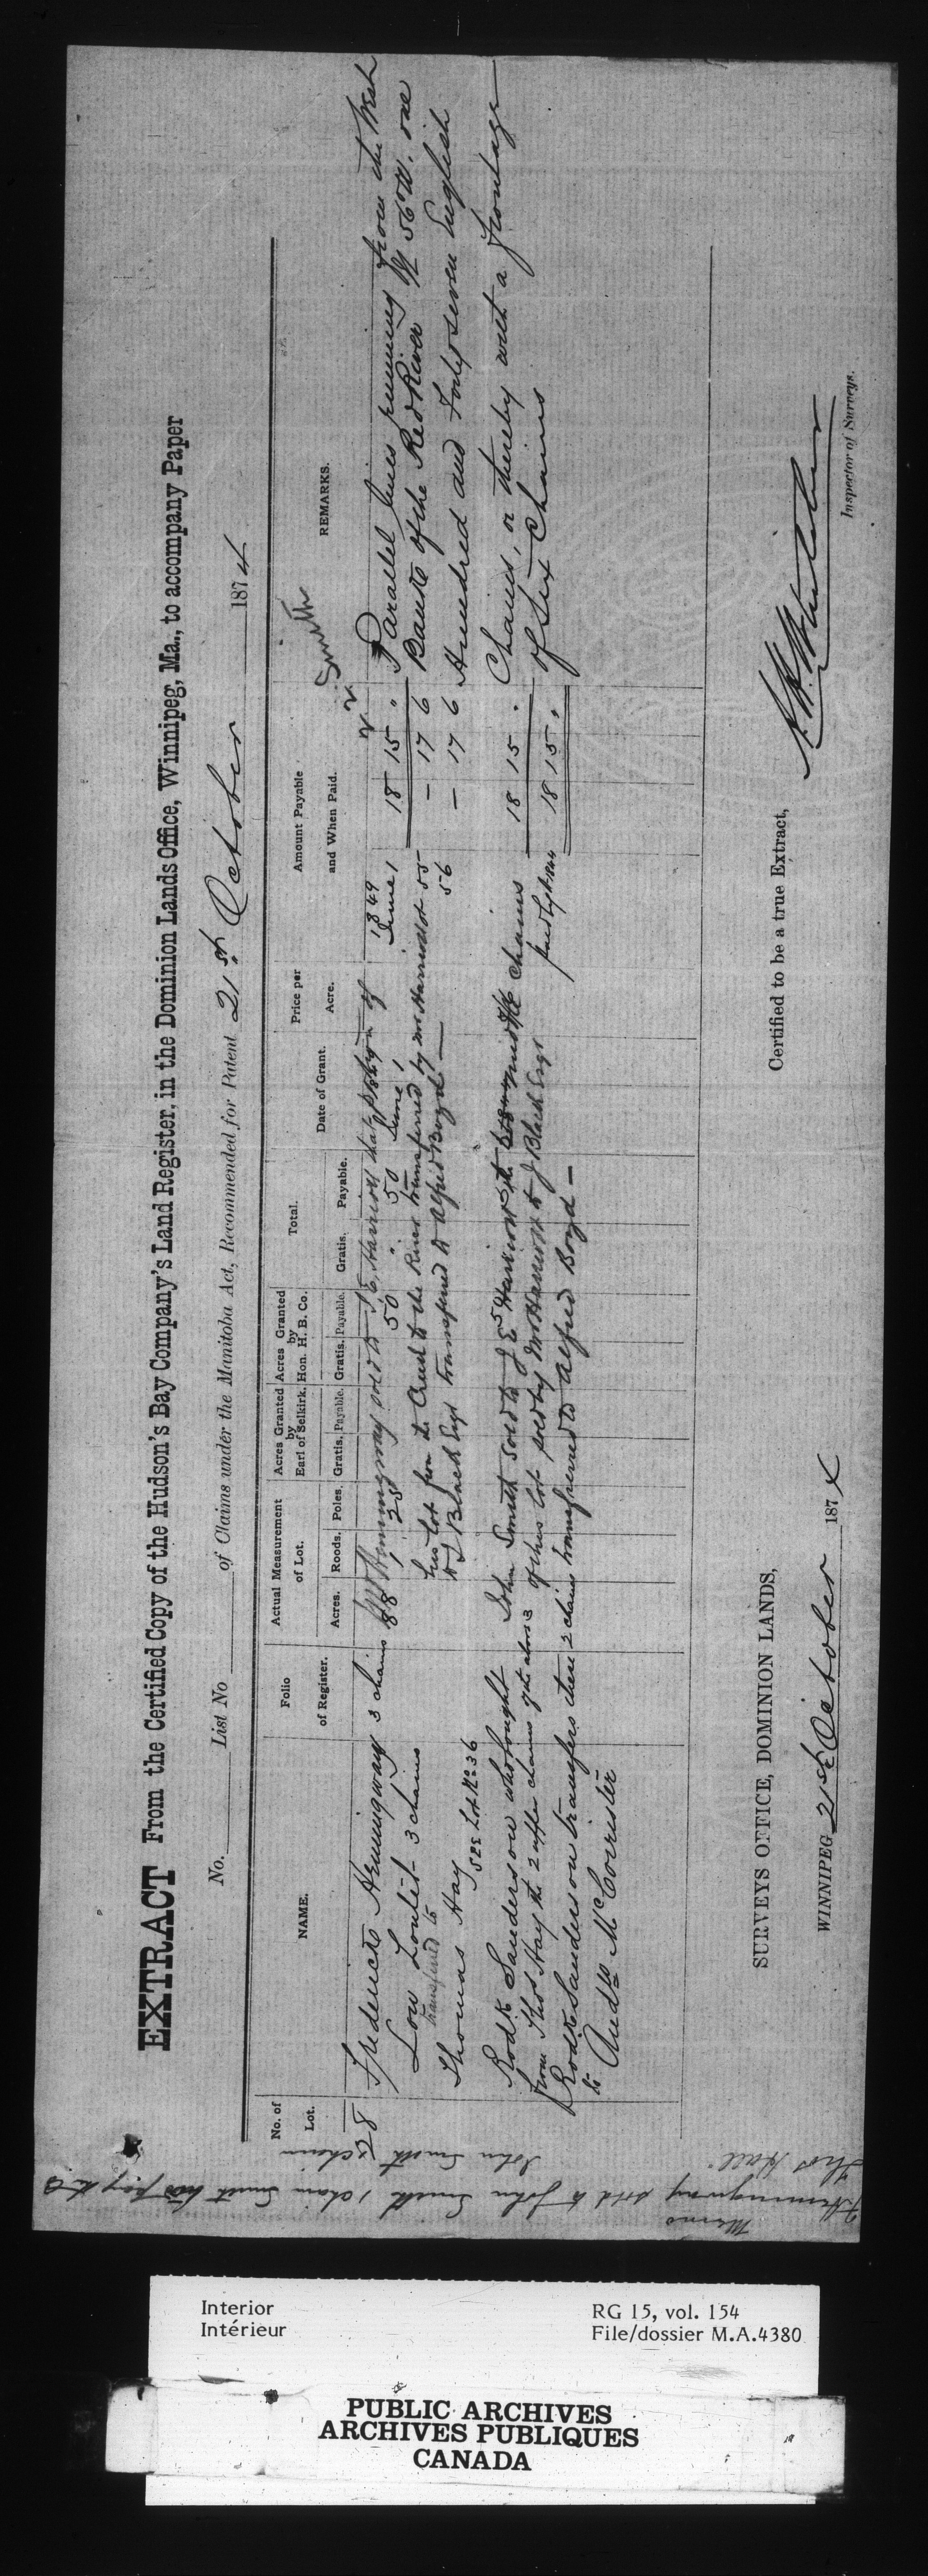 EXTRACT From the Certified Copy of the Hudson's Bay Company's Land Register, in the Dominion Lands Office, Winnipeg, Ma., to accompany Paper
No. List No of Claims under the Manitoba Act, Recommended for Patent 21st October 1874
No. of Lot.
NAME.
Folio of Register.
Actual Measurement of Lot.
Acres. Roods. Poles.
Acres Granted by Earl of Selkirk.
Gratis. Payable.
Acres Granted by Hon. H. B. Co.
Gratis. Payable.
Total.
Gratis. Payable.
Date of Grant.
Price per Acre.
Amount Payable and When Paid.
REMARKS.
Smith
28 Frederick Hemingway 3 chains
Low Loutit - 3 chains
transferred to
Thomas Hay
See Lot No 36
Rodk Sanderson who bought
from Thos Hay the 2 upper chains of the above 3
Rodk Sanderson transfers these 2 chains
to Andw McCorrister
Hemingway sold to Harriott that portion of
88 1 25 50 " 50 June 1
his lot from the to the River transferred by Mr Harriott
to J Black Esqr transferred to Alfred Boyd
John Smith sold to J E Harriott chains
of this lot sold by Mr Harriott to J Black Esqr
transferred to Alfred Boyd
1849
June 1 18 15 "
55 - 17 6
56 - 17 6
18 15 .
18 15 "
Parallel lines running from the West
Bank of the Red River N 56° W. one
Hundred and Forty seven English
Chains, or thereby with a frontage
of six Chains
SURVEYS OFFICE, DOMINION LANDS,
WINNIPEG 21st October 1874
Certified to be a true Extract,
Inspector of Surveys.
Memo
Hemingway sold to John Smith 1 chain Smith
Thos
John Smith chain
Interior
Intérieur
RG 15, vol. 154
File/dossier M.A.4380
PUBLIC ARCHIVES
ARCHIVES PUBLIQUES
CANADA